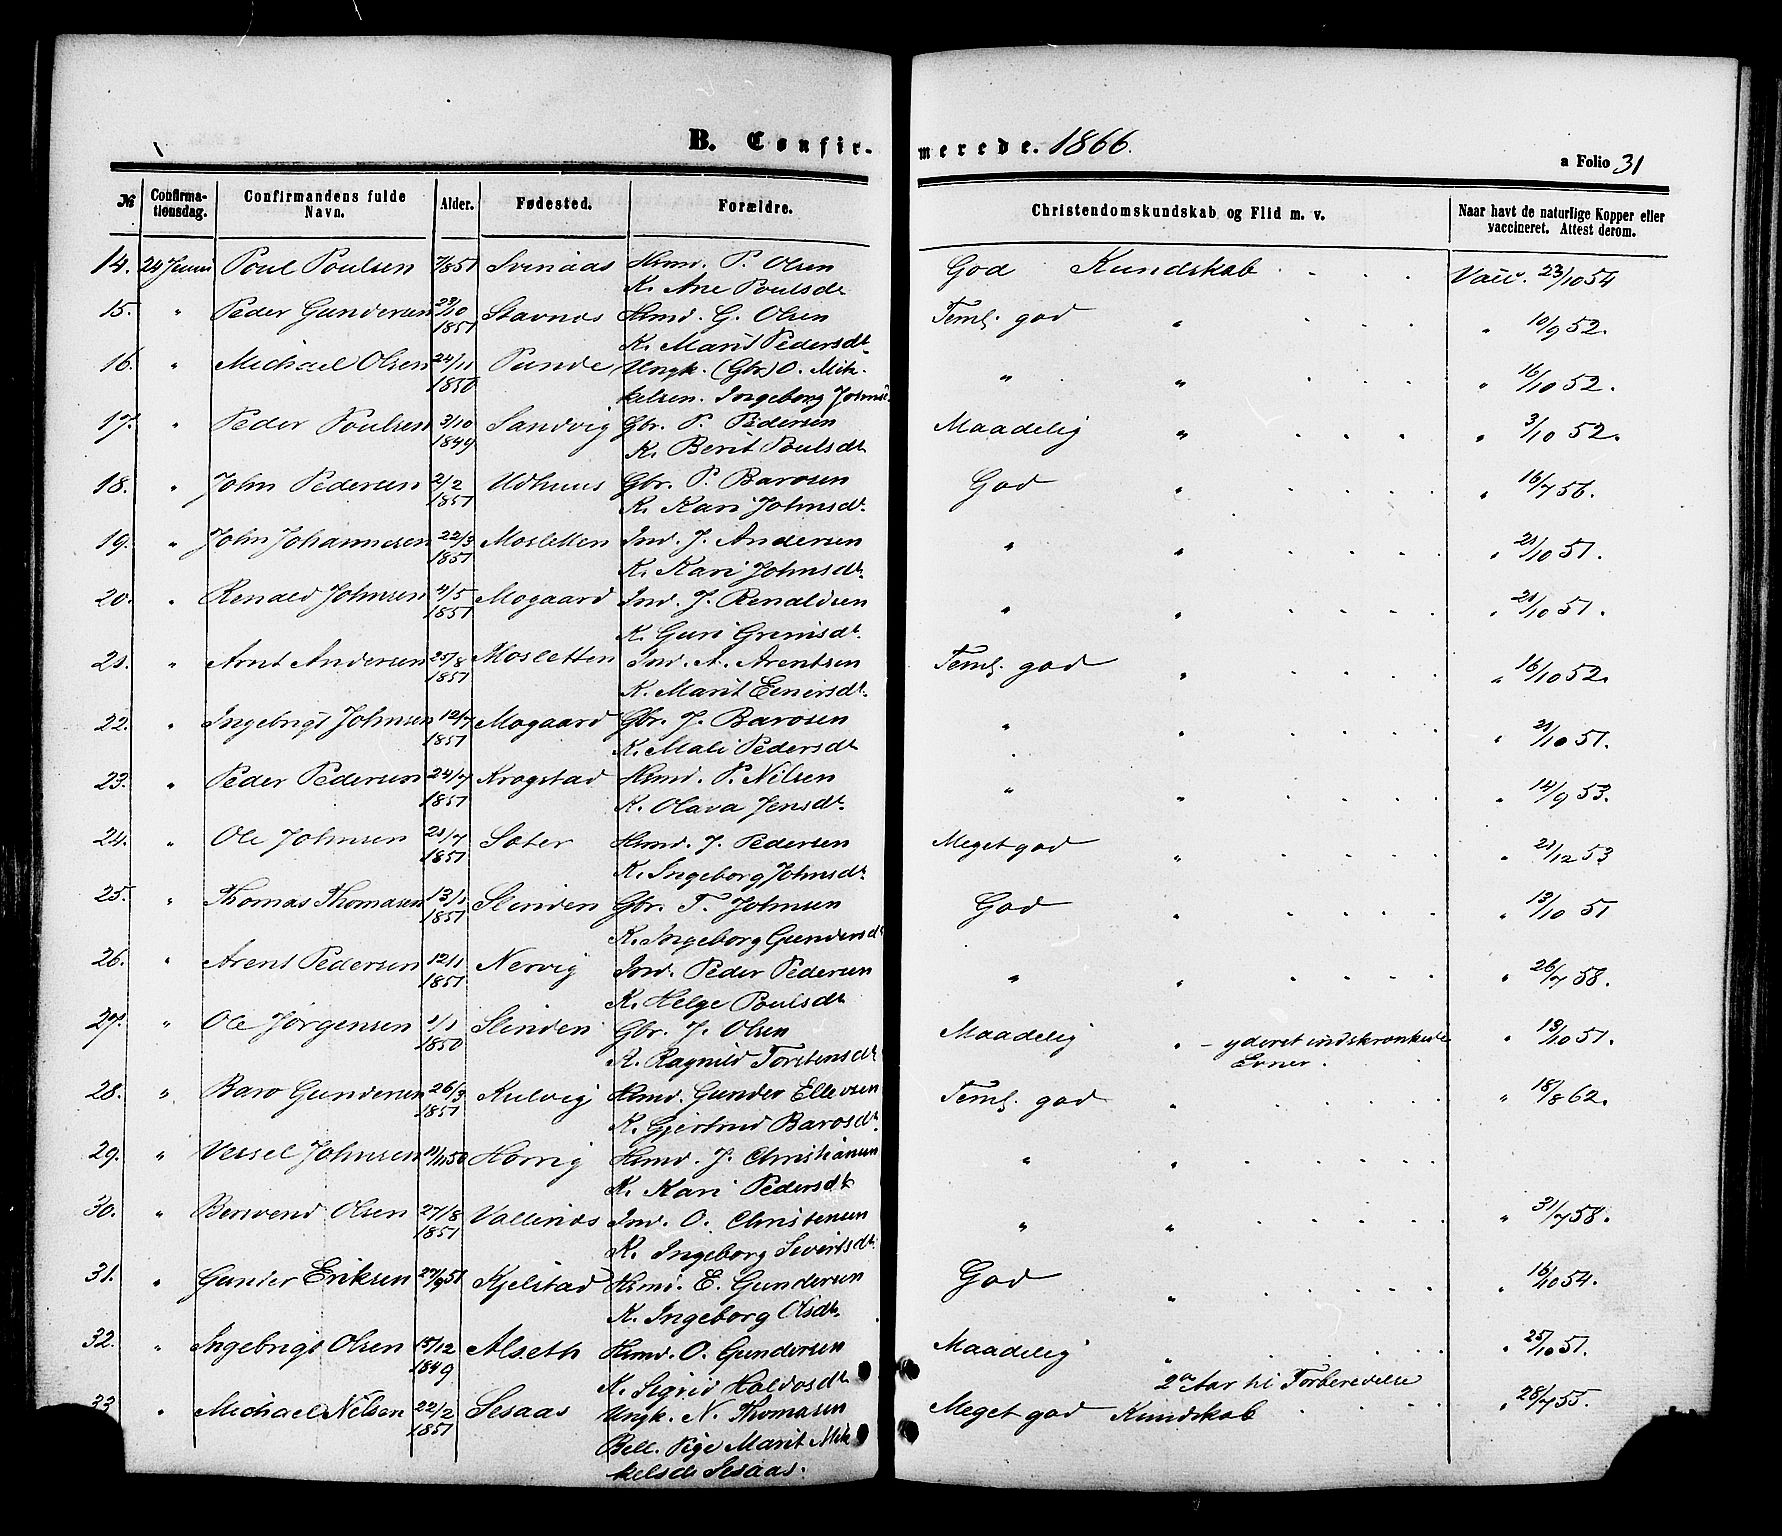 B. Confirmerede. 1866.
a Folio 31
№ Confirmationsdag. Confirmandens fulde Navn. Alder. Fødested. Forældre. Christendomskundskab og Flid m. v. Naar havt de naturlige Kopper eller vaccineret. Attest derom.
14. 24 Juni Poul Poulsen 7/851 Svenaas Hsmd. P. Olsen God Kundskab . . . Vacc. 23/10 54
K. Ane Poulsdr
15. " Peder Gundersen 23/10 1851 Stavnes Hsmd. G. Olsen Teml. god " . . . " 10/9 52.
K. Marit Pedersdr
16. " Michael Olsen 24/11 1850 Sunde Ungk. (Gbr) O. Mik- " " . . . " 16/10 52.
kelsen. Ingeborg
17. " Peder Poulsen 3/10 1849 Sandvig Gbr. P. Pedersen Maadelig " . . . " 3/10 52.
K. Berit Poulsdr
18. " John Pedersen 2/2 1851 Udhuus Gbr. P. Barosen God " . . . " 16/7 56.
K. Kari Johnsdr.
19. " John Johannesen 22/3 1851 Mosletten Ind. J. Andersen " " . . . " 21/10 51.
K. Kari Johnsdr.
20. " Renald Johnsen 4/5 1851 Mogaard Ind. J. Renaldsen " " . . . " 21/10 51.
K. Guri Grimsdr.
21. " Arnt Andersen 25/8 1851 Mosletten Ind. A. Arentsen Teml. god " . . . " 16/10 52.
K. Marit Einersdr.
22. " Ingebrigt Johnsen 12/7 1851 Mogaard Gbr. J. Barosen " " . . . " 21/10 51.
K. Mali Pedersdr
23. " Peder Pedersen 24/7 1851 Krogstad Hsmd. P. Nilsen " " . . . " 14/9 53.
K. Olava Jensdr.
24. " Ole Johnsen 21/7 1851 Sæter Hsmd. J. Pedersen Meget god " . . . " 21/12 53
K. Ingeborg Johnsdr
25. " Thomas Thomasen 13/1 1851 Slinden Gbr. T. Johnsen God " . . . " 13/10 51
K. Ingeborg Gundersdr
26. " Arent Pedersen 12/1 1851 Nervig Ind. Peder Pedersen " " . . . " 26/7 58.
K. Helge Poulsdr
27. " Ole Jørgensen 1/1 1850 Slinden Gbr. J. Olsen Maadelig " - yderst indskrænkede " 13/10 51.
K. Ragnild Torstensdr Evner.
28. " Baro Gundersen 26/3 1851 Kulvig Hsmd. Gunder Ellevsen Teml. god " . . . " 18/8 62.
K. Gjertrud Barosdr.
29. " Vessel Johnsen 13/11 50 Horvig Hsmd. J. Christiansen " " . . .
K. Kari Pedersdr
30. " Bersvend Olsen 27/8 1851 Vallenæs Ind. O. Christensen " " . . . " 31/7 58.
K. Ingeborg Sivertsdr.
31. " Gunder Eriksen 27/9 51 Kjelstad Hsmd. E. Gundersen God " . . . " 16/10 54.
K. Ingeborg Olsdr.
32. " Ingebrigt Olsen 15/12 1849 Alseth Hsmd. O. Gundersen Maadelig " . . . " 25/10 51.
K. Sigrid Haldosdr 2det Aar til Forberedelse
33. " Michael Nilsen 22/2 1851 Sesaas Ungk. N. Thomasen Meget god Kundskab . . . " 28/7 55.
Bell. Pige Marit Mik-
kelsdr Sesaas.